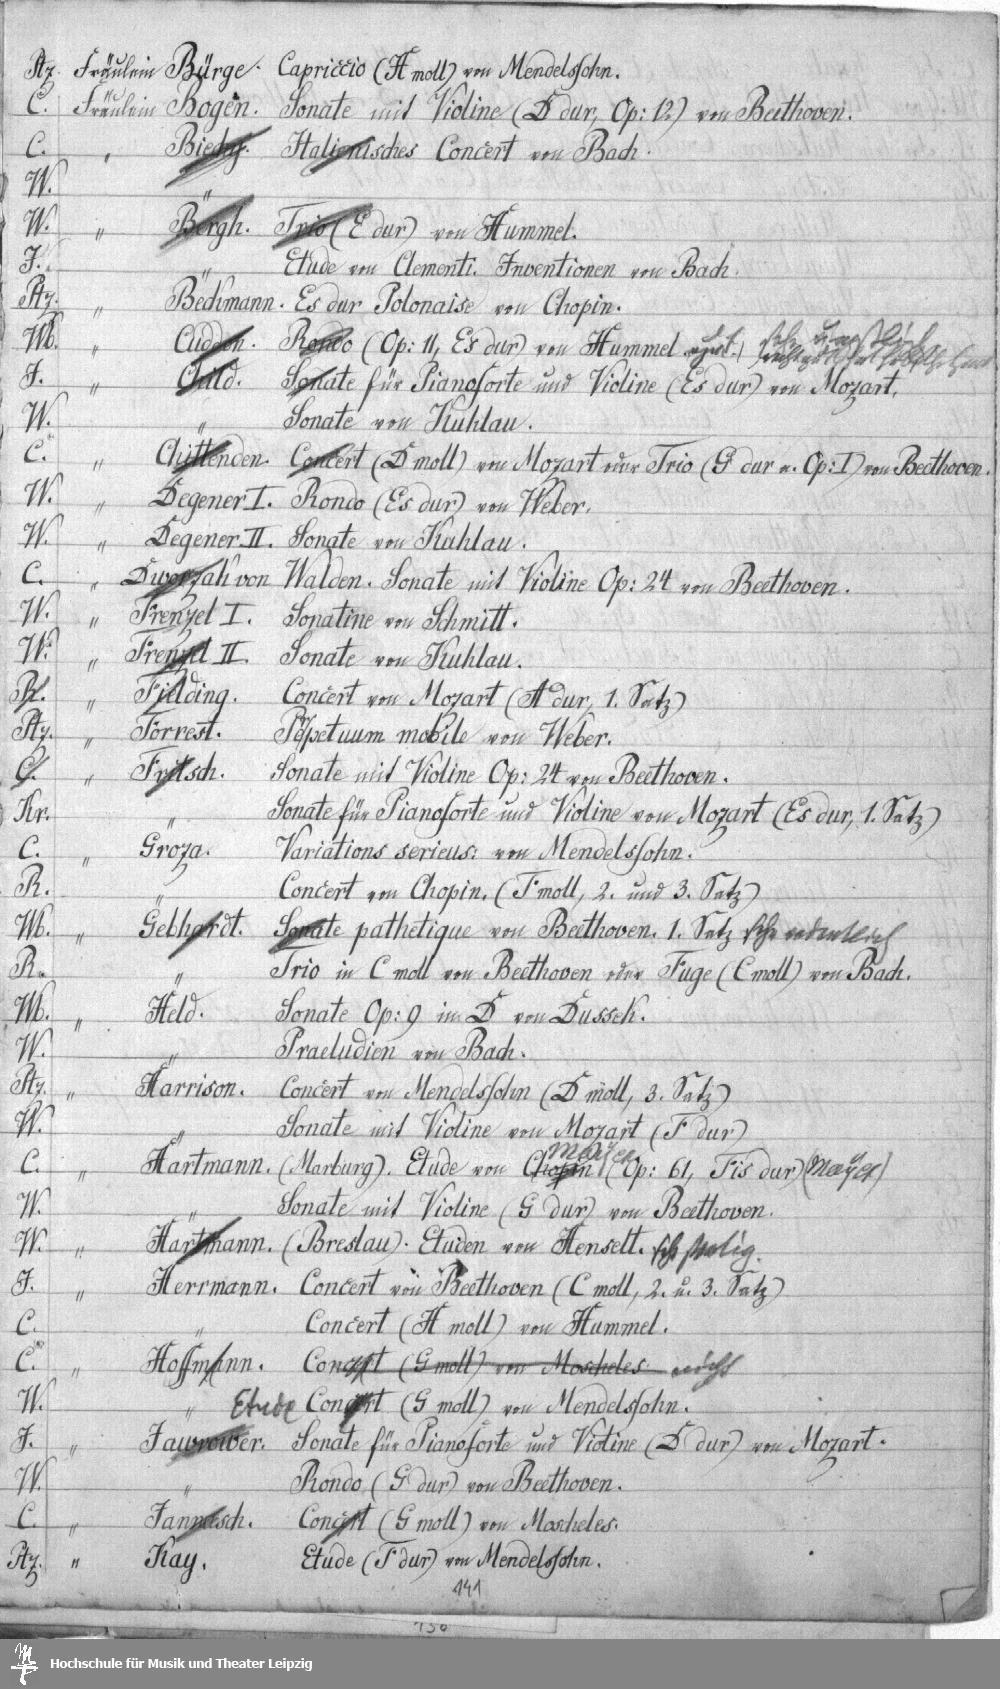 Ptz. Fräulein Bürge. Capriccio (H moll) von Mendelssohn.
C. Fräulein Bogen. Sonate mit Violine (D dur, Op: 12) von Beethoven.
C. " Italienisches Concert von Bach.
W. "
W. " Bergh. Trio (E dur) von Hummel.
F. " Etude von Clementi. Inventionen von Bach.
Ptz. " Beckmann. Es dur Polonaise von Chopin.
Wb. " Cuddon. Rondo (Op: 11, Es dur) von Hummel
F. " Child. Sonate für Pianoforte und Violine (Es dur) von Mozart.
W. " Sonate von Kuhlau.
C. " Chittenden. Concert (D moll) von Mozart oder Trio (G dur a. Op: I) von Beethoven.
W. " Degener I. Rondo (Es dur) von Weber.
W. " Degener II. Sonate von Kuhlau.
C. " Dworzak von Walden. Sonate mit Violine Op: 24 von Beethoven.
W. " Frenzel I. Sonatine von Schmitt.
W. " Frenzel II. Sonate von Kuhlau.
R. " Fielding. Concert von Mozart (A dur, 1. Satz)
Ptz. " Forrest. Perpetuum mobile von Weber.
C. " Fritsch. Sonate mit Violine Op: 24 von Beethoven.
Kr. " Sonate für Pianoforte und Violine von Mozart (Es dur, 1. Satz)
C. " Groza. Variations serieus: von Mendelssohn.
R. " Concert von Chopin. (F moll, 2. und 3. Satz)
Wb. " Gebhardt. Sonate pathetique von Beethoven. 1. Satz sehr ordentlich
R. " Trio in C moll von Beethoven oder Fuge (C moll) von Bach.
Wb. " Held. Sonate Op: 9 in D von Dussek.
W. " Praeludien von Bach.
Ptz. " Harrison. Concert von Mendelssohn (D moll, 3. Satz)
W. " Sonate mit Violine von Mozart (F dur)
Mayer
C. " Hartmann. (Marburg). Etude von Chopin (Op: 61, Fis dur) (Mayer)
W. " Sonate mit Violine (G dur) von Beethoven.
W. " Hartmann. (Breslau). Etuden von Henselt.
F. " Herrmann. Concert von Beethoven (C moll, 2. u. 3. Satz)
C. " Concert (H moll) von Hummel.
C. " Hoffmann. Concert (G moll) von Moscheles nicht
W. " Etude Concert (G moll) von Mendelssohn.
F. " Jawrower. Sonate für Pianoforte und Violine (D dur) von Mozart.
W. " Rondo (G dur) von Beethoven.
C. " Jannasch. Concert (G moll) von Moscheles.
Ptz. " Kay. Etude (F dur) von Mendelssohn.
141
Hochschule für Musik und Theater Leipzig